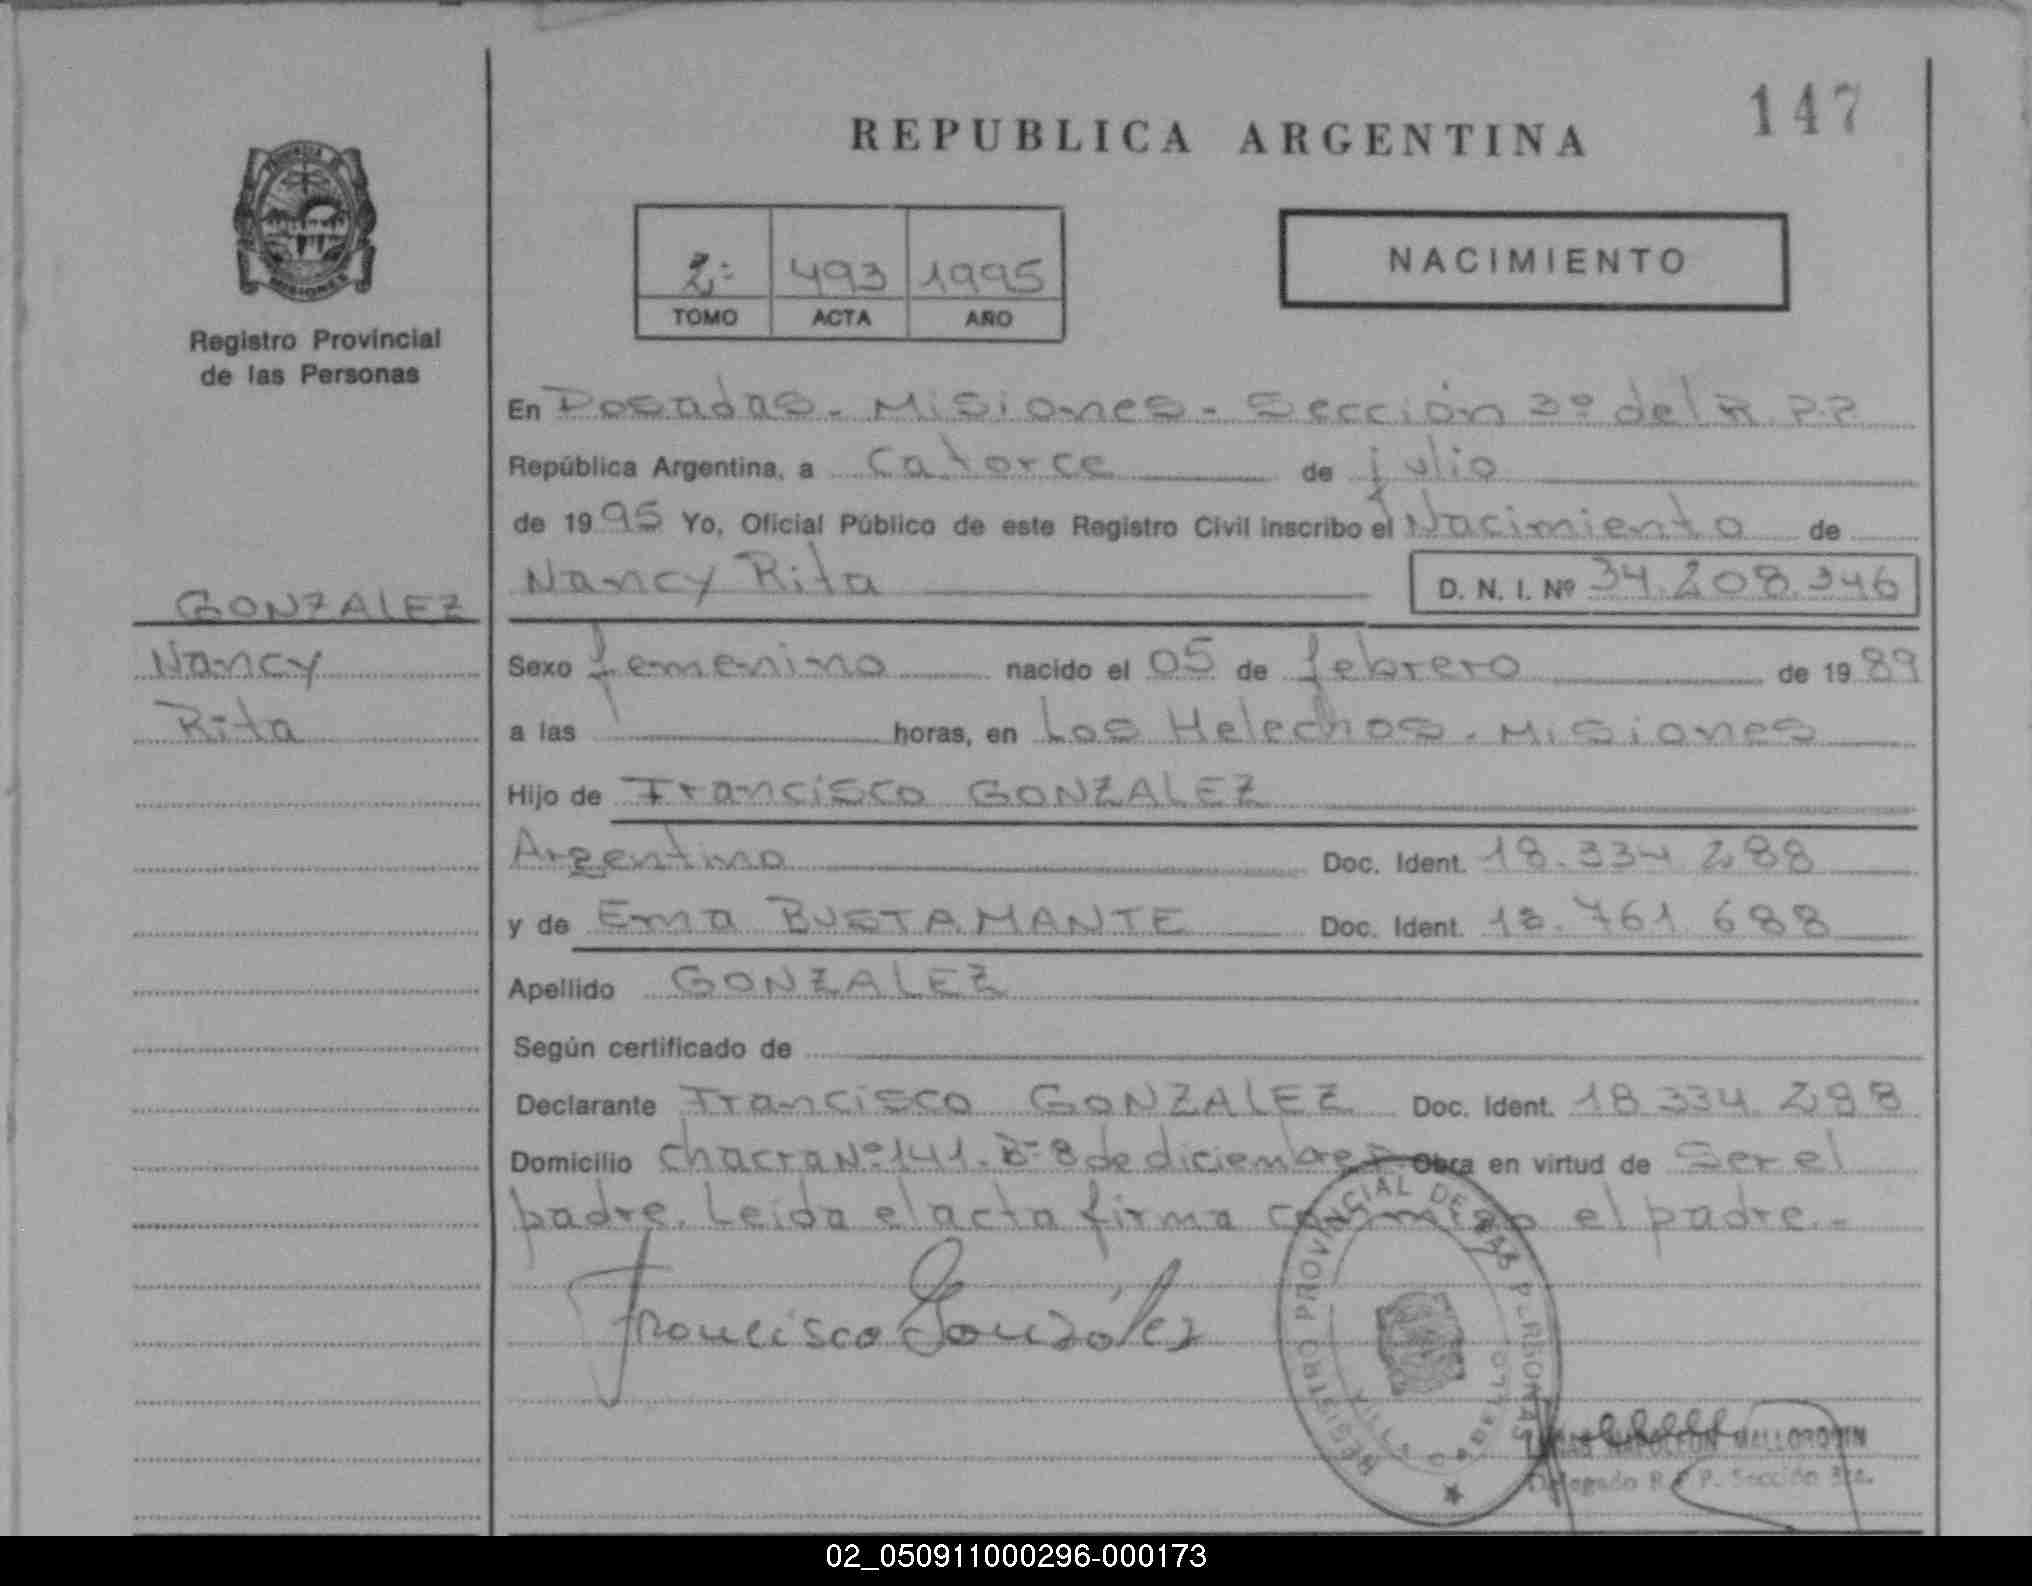 147
REPUBLICA ARGENTINA
2º 493 1995
TOMO ACTA AÑO
NACIMIENTO
Registro Provincial
de las Personas
En Posadas - Misiones - Sección 3º del R.P.P
República Argentina, a Catorce de julio
de 1995 Yo, Oficial Público de este Registro Civil inscribo el Nacimiento de
Nancy Rita D. N. I. Nº 34.208.346
GONZALEZ
Nancy
Rita
Sexo femenino nacido el 05 de febrero de 1989
a las horas, en Los Helechos - Misiones
Hijo de Francisco GONZALEZ
Argentino Doc. Ident. 18.334.288
y de Ema BUSTAMANTE Doc. Ident. 18.761.688
Apellido GONZALEZ
Según certificado de
Declarante Francisco GONZALEZ Doc. Ident. 18.334.298
Domicilio chacra Nº 141. Bº 8 de diciembre Obra en virtud de Ser el
padre. Leída el acta firma conmigo el padre.-
Francisco González
REGISTRO PROVINCIAL DE LAS PERSONAS
VILLA CABELLO
LUCAS NAPOLEON MALLORQUIN
Delegado R.P.P. Sección 3ra.
02_050911000296-000173